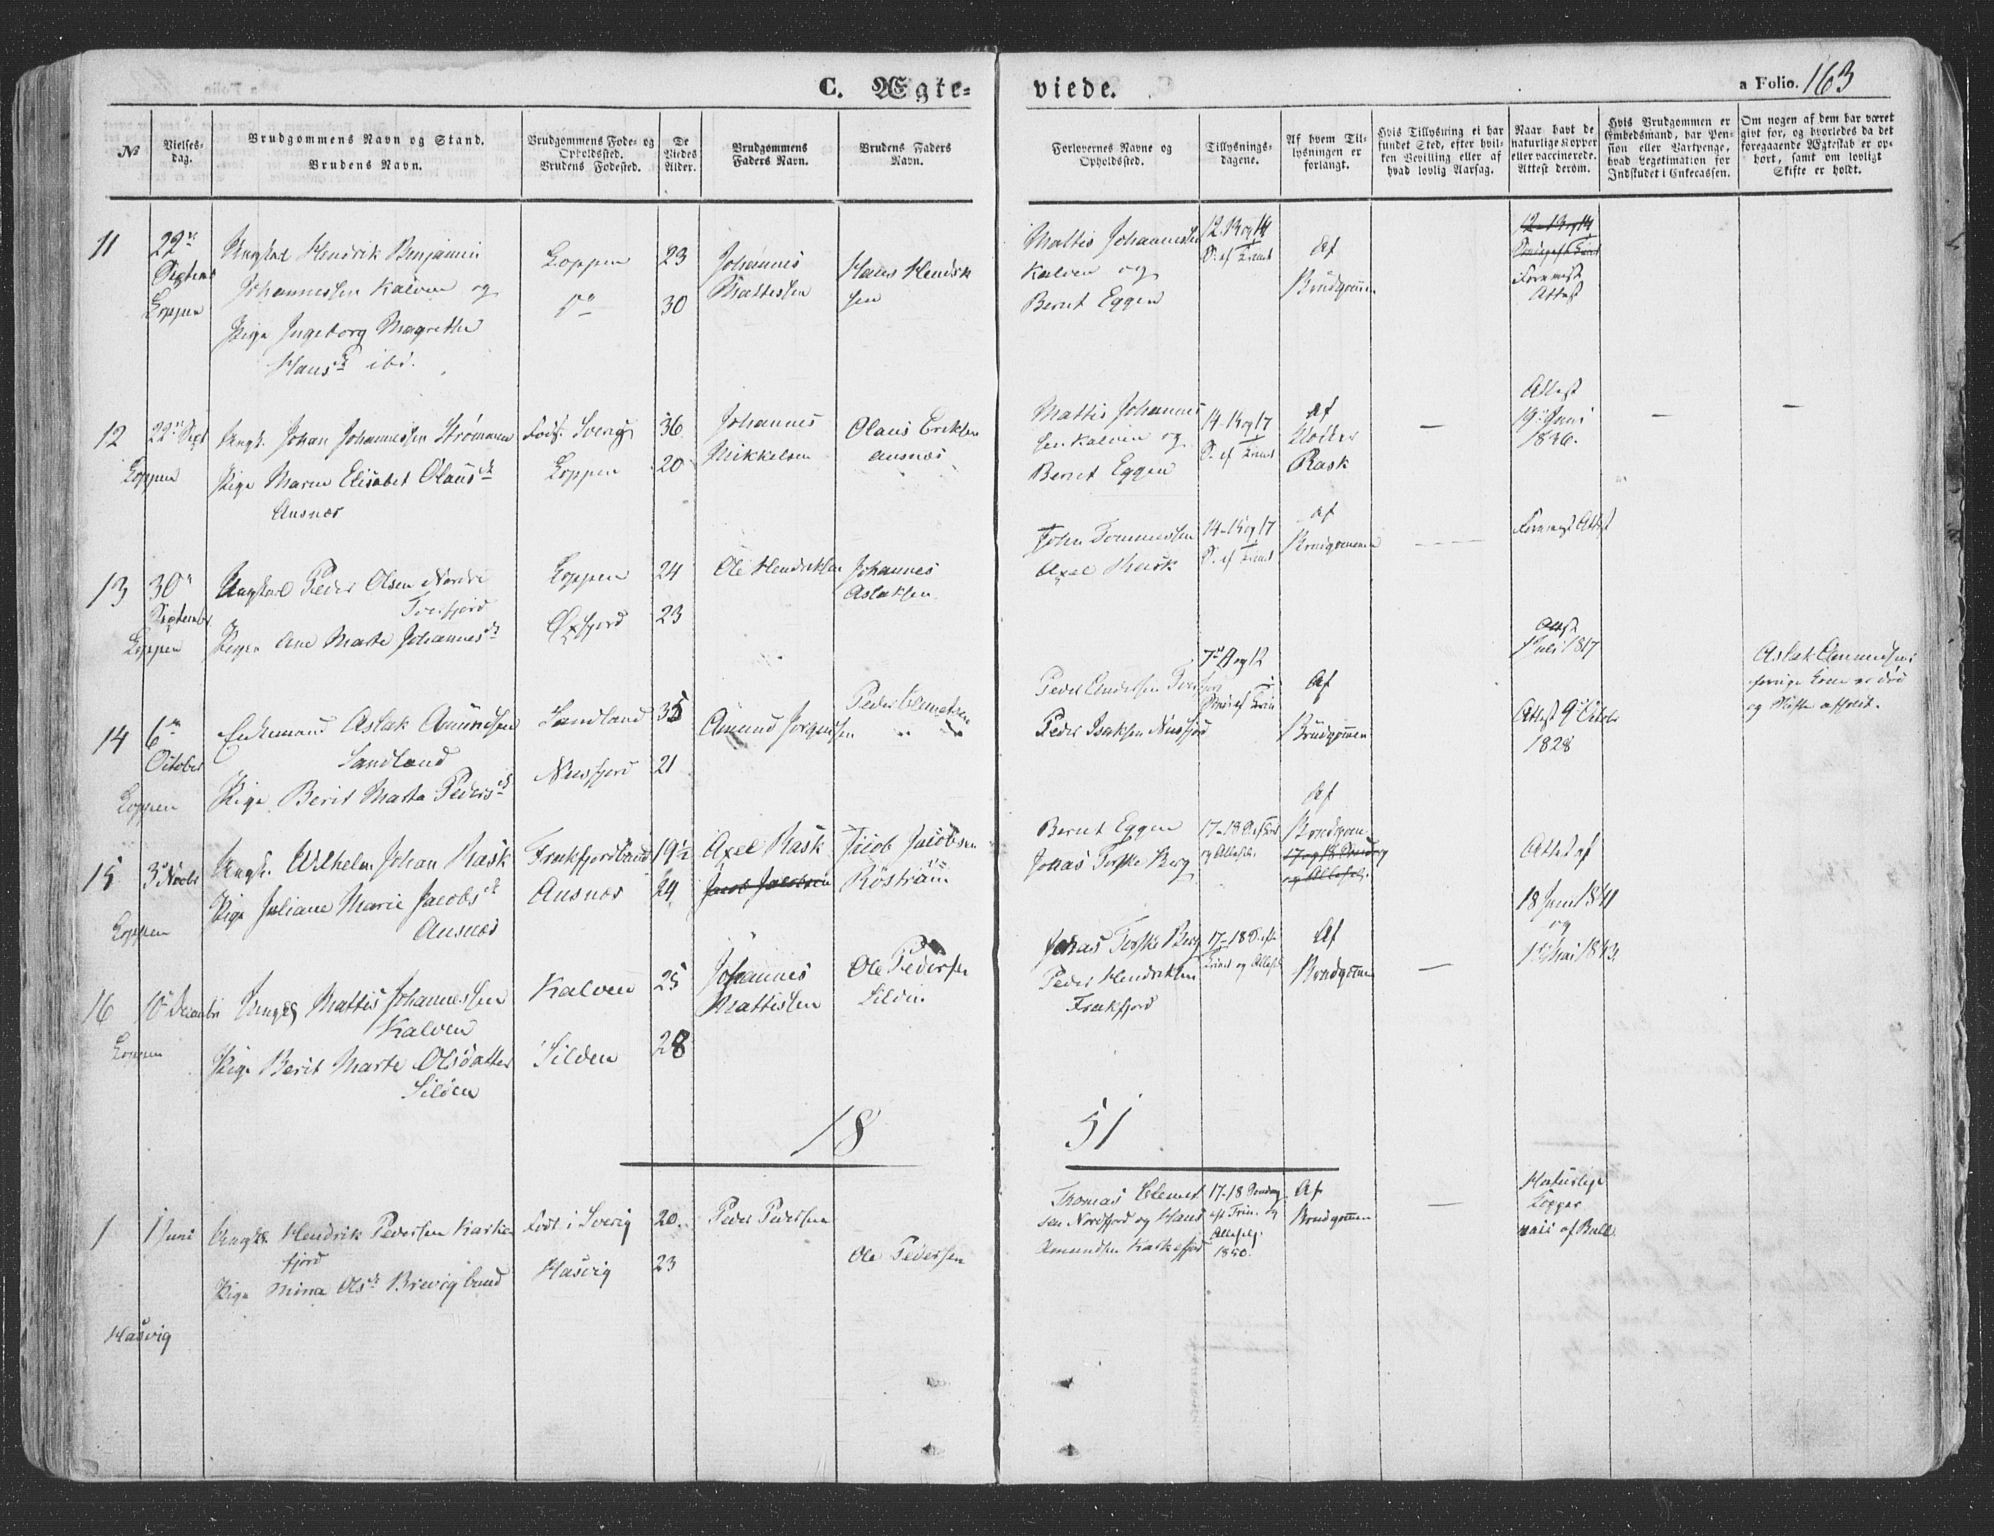 C. Ægte-
viede.
a Folio. 163
№
Vielses-
dag.
Brudgommens Navn og Stand.
Brudens Navn.
Brudgommens Føde- og
Opholdssted.
Brudens Fødested.
De
Viedes
Alder.
Brudgommens
Faders Navn.
Brudens Faders
Navn.
Forlovernes Navne og
Opholdssted.
Tillysnings-
dagene.
Af hvem Til-
lysningen er
forlangt.
Hvis Tillysning ei har
fundet Sted, efter hvil-
ken Bevilling eller af
hvad lovlig Aarsag.
Naar havt de
naturlige Kopper
eller vaccinerede.
Attest derom.
Hvis Brudgommen er
Embedsmand, har Pen-
sion eller Vartpenge,
hvad Legetimation for
Indskudet i Enkecassen.
Om nogen af dem har været
givt for, og hvorledes da det
foregaaende Ægteskab er op-
hørt, samt om lovligt
Skifte er holdt.
11
22de
Septemb
Loppen
Ungkarl Hendrik Benjamin
Johannessen Kalven og
Pige Ingeborg Magrethe
Hansd ibd.
Loppen
do
23
30
Johannes
Mattissen
Hans Hendrik
sen
Mattis Johannessen
Kalven og
Bernt Eggen
12. 13 og 14
S. ef. Trinit
Af
Brudgommen
12-13 og 14
Forevist
Attest
12
22de Sept
Loppen
Ungk. Johan Johannessen Strømmen
Pige Maren Elisabet Olausd
Ausnæs
Født i Sverig
Loppen
36
20
Johannes
Mikkelsen
Olaus Eriksen
Ausnæs
Mattis Johannes
sen Kalven og
Bernt Eggen
14-15 og 17
S. ef Trinit
Af
Klokker
Rask
—
Attest
19 Juni
1836.
—
—
13
30te
Septembr.
Loppen
Ungkarl Peder Olsen Nordre
Torfjord
Pigen Ane Marte Johannesd
Loppen
Øxfjord
24
23
Ole Hendriksen
Johannes
Aslaksen
John Tommessen
Axel Rask
14-15 og 17
S. ef Trinit
Af
Brudgommen
Forevist Attest
14
6te
October
Loppen
Enkemand Aslak Amundsen
Sandland
Pige Berit Marta Pedersd
Sandland
Nusfjord
35
21
Amund Jørgensen
Peder
Peder Andersen
Peder Isaksen Nusfjord
7de og 12
Af
Brudgommen
Attest
Juli 1817
Attest 9de Octobr
1828
Aslak Amundsens
forrige Kone er død
og Skifte afholdt.
15
3de Novbr
Loppen
Ungk. Wilhelm Johan Rask
Pige Juliane Marie Jacobsd
Ausnæs
Frakfjordbund
Ausnæs
19½
24
Axel Rask
Jacob Jacobsen
Jacob Jacobsen
Røstrøm
Bernt Eggen
Jonas Torske Berg
17-18 S. ef Trin
og Allehelg.
Af
Brudgom.
17 og 18 Søndag
og Allehelg.
Attest af
18 Juni 1841
og
1 Mai 1843.
16
10 Decembr
Loppen
Ungk Mattis Johannessen
Kalven
Pige Berit Marte Olsdatter
Silden
Kalven
Silden
25
28
Johannes
Mattissen
Ole Pedersen
Silden
Jonas Torske Berg
Peder Hendriksen
Frakfjord
17-18 S. efter
Trinit og Allehelg
Af
Brudgommen
—
18
51
1
1 Juni
Hasvig
Ungk Hendrik Pedersen Kaske
fjord
Pige Mina Olsd Brevigbund
Født i Sverig
Hasvig
20.
23
Peder Pedersen
Ole Pedersen
Thomas Clemet
sen Nordfjord og Hans
Amundsen Kaskefjord
17-18 Søndag
eft Trin. og
Allehelg.
1850.
Af
Brudgommen
—
Naturlige
Kopper